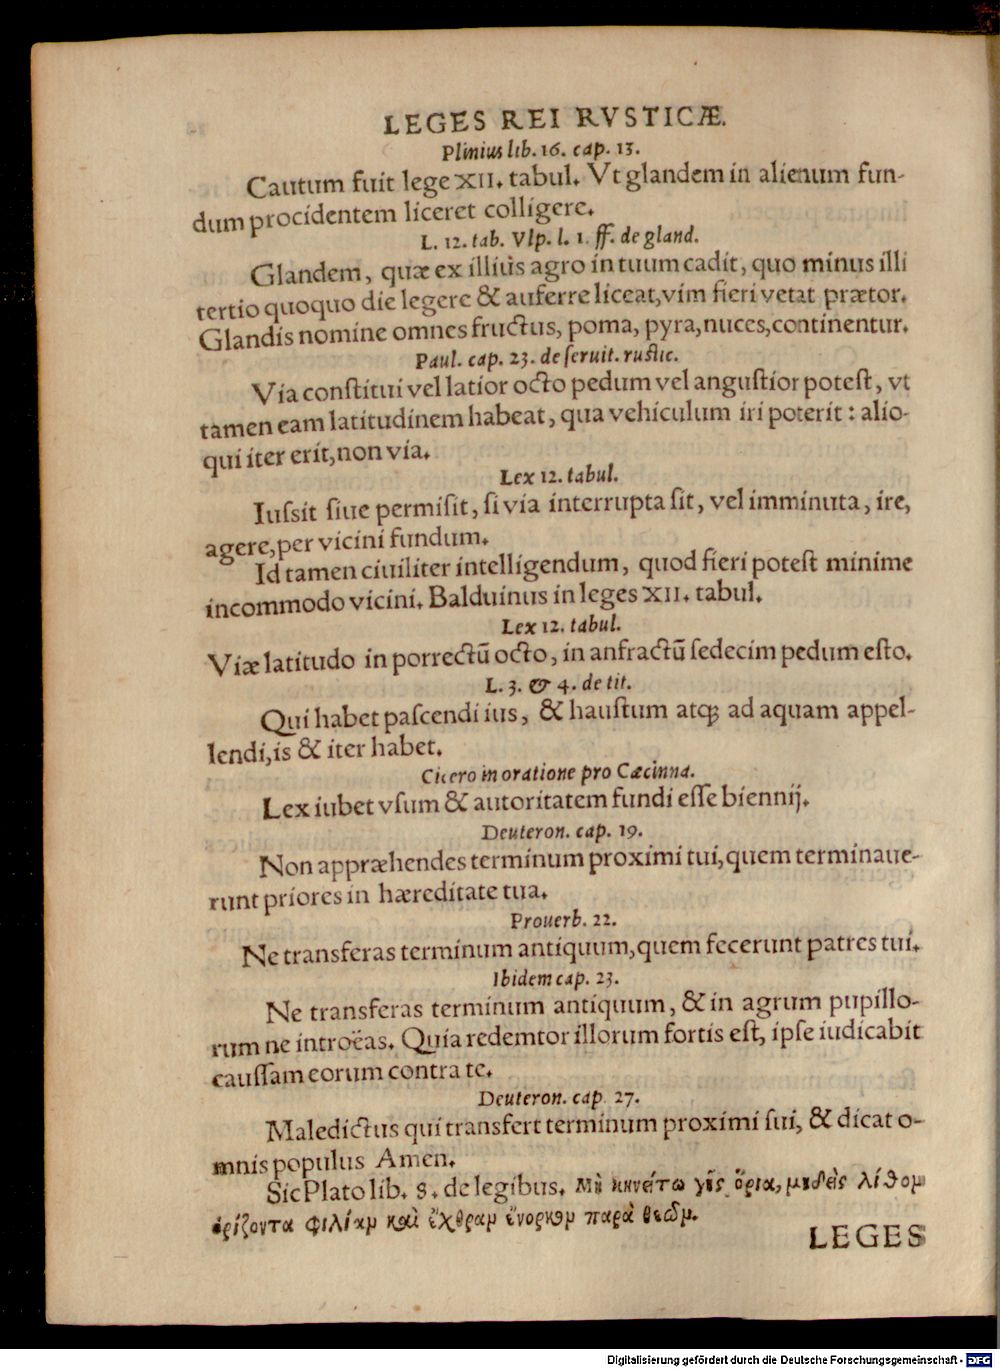 LEGES REI RVSTICÆ.
Plinius lib. 16. cap. 13.
Cautum fuit lege XII. tabul. Vt glandem in alienum fun-
dum procidentem liceret colligere.
L. 12. tab. Vlp. l. 1. ff. de gland.
Glandem, quæ ex illius agro in tuum cadit, quo minus illi
tertio quoquo die legere & auferre liceat, vim fieri vetat prætor.
Glandis nomine omnes fructus, poma, pyra, nuces, continentur.
Paul. cap. 23. de seruit. rustic.
Via constitui vel latior octo pedum vel angustior potest, vt
tamen eam latitudinem habeat, qua vehiculum iri poterit: alio-
qui iter erit, non via.
Lex 12. tabul.
Iussit siue permisit, si via interrupta sit, vel imminuta, ire,
agere, per vicini fundum.
Id tamen ciuiliter intelligendum, quod fieri potest minime
incommodo vicini. Balduinus in leges XII. tabul.
Lex 12. tabul.
Viæ latitudo in porrectū octo, in anfractū sedecim pedum esto.
L. 3. & 4. de tit.
Qui habet pascendi ius, & haustum atq; ad aquam appel-
lendi, is & iter habet.
Cicero in oratione pro Cæcinna.
Lex iubet vsum & autoritatem fundi esse biennij.
Deuteron. cap. 19.
Non appræhendes terminum proximi tui, quem terminaue-
runt priores in hæreditate tua.
Prouerb. 22.
Ne transferas terminum antiquum, quem fecerunt patres tui.
Ibidem cap. 23.
Ne transferas terminum antiquum, & in agrum pupillo-
rum ne introëas. Quia redemtor illorum fortis est, ipse iudicabit
caussam eorum contra te.
Deuteron. cap. 27.
Maledictus qui transfert terminum proximi sui, & dicat o-
mnis populus Amen.
Sic Plato lib. 8. de legibus. Μὴ κινείτω γῆς ὅρια, μηδεὶς λίθομ
ὁρίζοντα φιλίαμ καὶ ἔχθραμ ἔνορκομ παρὰ θεῶμ.
LEGES
Digitalisierung gefördert durch die Deutsche Forschungsgemeinschaft - DFG